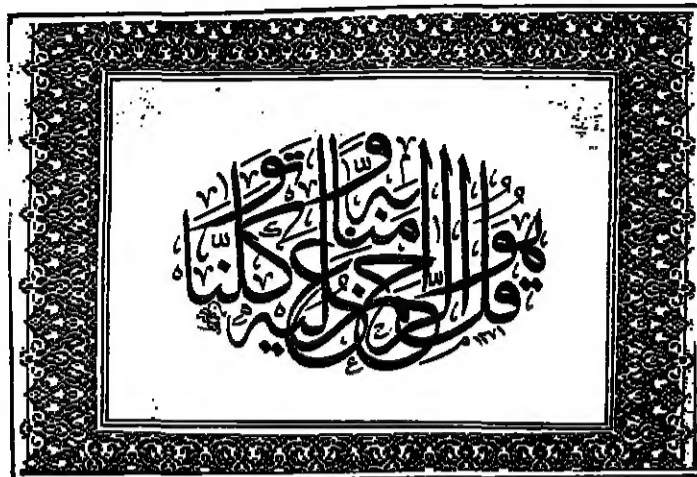 قل هو الرحمن آمنا به وعليه توكلنا
١٢٧١